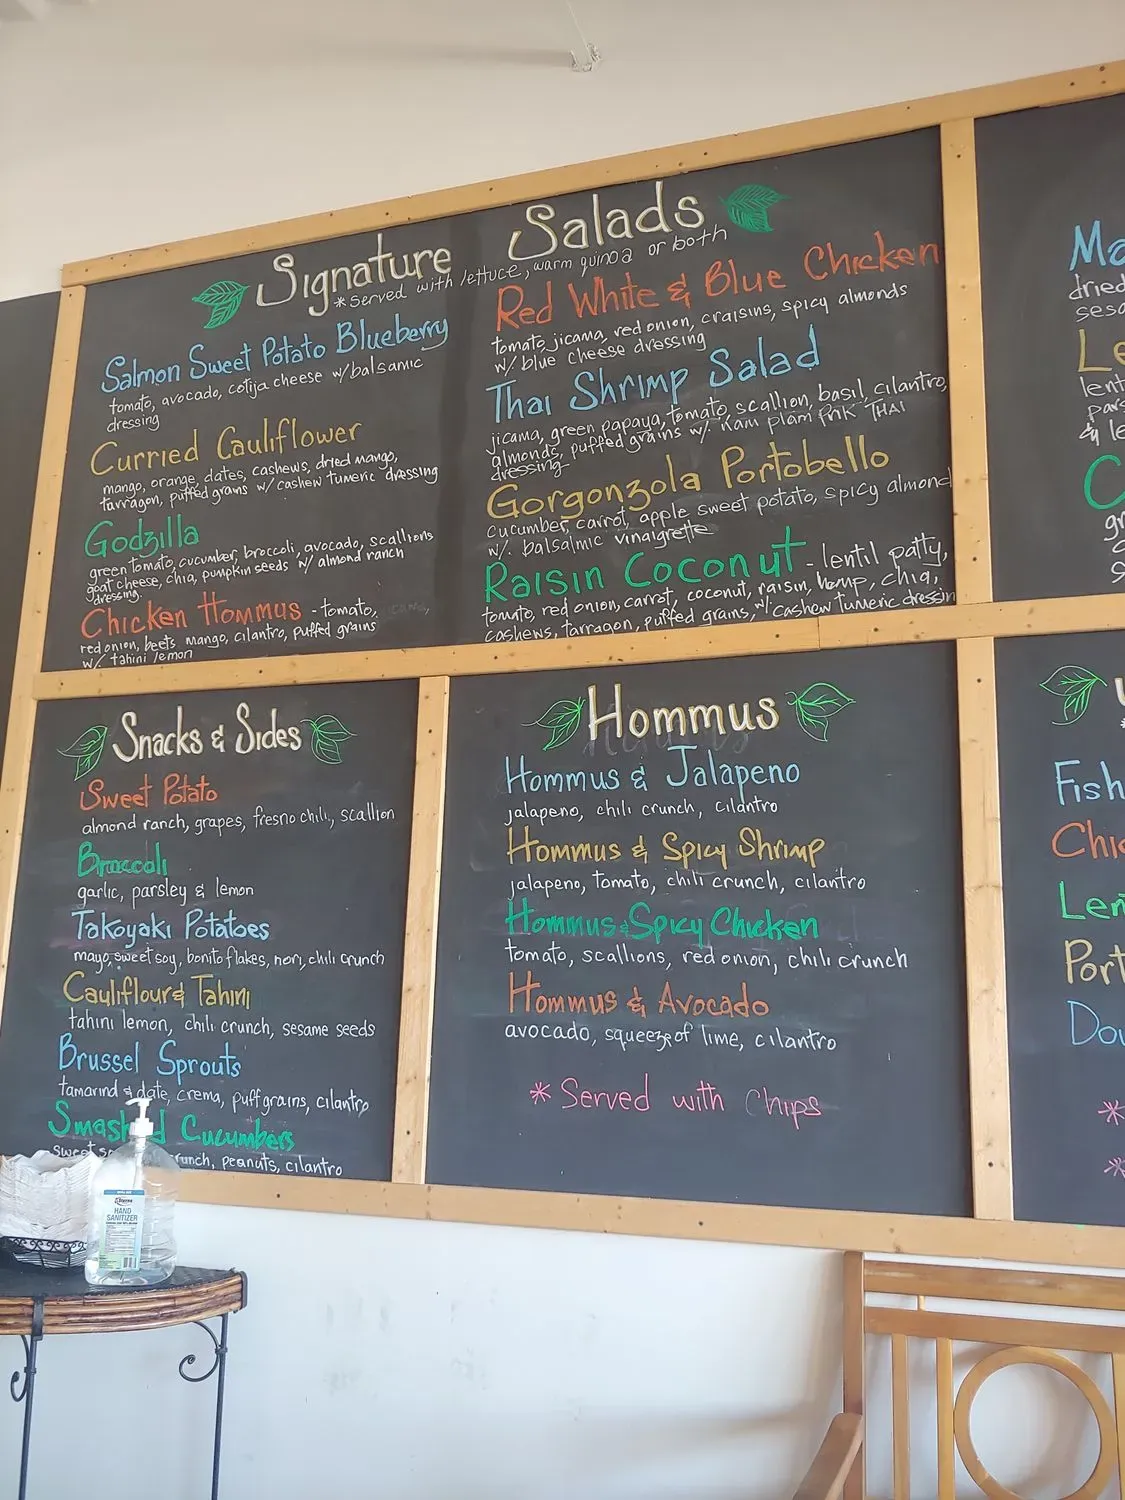 Signature Salads
*Served with lettuce, warm quinoa or both
Salmon Sweet Potato Blueberry
tomato, avocado, cotija cheese w/balsamic
dressing
Curried Cauliflower
mango, orange, dates, cashews, dried mango,
tarragon, puffed grains w/cashew tumeric dressing
Godzilla
green tomato, cucumber, broccoli, avocado, scallions
goat cheese, chia, pumpkin seeds w/ almond ranch
dressing.
Chicken Hommus - tomato,
red onion, beets mango, cilantro, puffed grains
w/. tahini lemon
Red White & Blue Chicken
tomato, jicama, red onion, craisins, spicy almonds
w/. blue cheese dressing
Thai Shrimp Salad
jicama, green papaya, tomato, scallion, basil, cilantro,
almonds, puffed grains w/. Nam plam THAI
dressing
Gorgonzola Portobello
cucumber, carrot, apple sweet potato, spicy almond
w/. balsalmic vinaigrette
Raisin Coconut - lentil patty,
tomato, red onion, carrot, coconut, raisin, hemp, chia,
cashews, tarragon, puffed grains, w/ cashew tumeric dressin
Snacks & Sides
Sweet Potato
almond ranch, grapes, fresno chili, scallion
Broccoli
garlic, parsley & lemon
Takoyaki Potatoes
mayo, sweet soy, bonito flakes, nori, chili crunch
Cauliflour & Tahini
tahini lemon, chili crunch, sesame seeds
Brussel Sprouts
tamarind & date, crema, puff grains, cilantro
Smash d Cucumbers
sweet s runch, peanuts, cilantro
Hommus
Hommus & Jalapeno
jalapeno, chili crunch, cilantro
Hommus & Spicy Shrimp
jalapeno, tomato, chili crunch, cilantro
Hommus & Spicy Chicken
tomato, scallions, red onion, chili crunch
Hommus & Avocado
avocado, squeeze of lime, cilantro
* Served with Chips
Ma
dried
seso
Le
lent
pars
& le
C
gr
Fish
Chic
Len
Port
Dou
*
*
HAND
SANITIZER